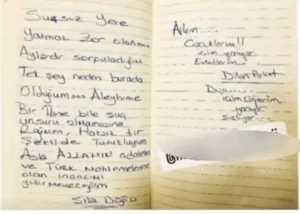 Suçsuz Yere
Yatmak Zor olanama
Aylardır sorguladığım
Tek şey neden burada
Olduğum Aleyhime
Bir Tane bile suç
unsuru olmamasına
Rağmen, Haksız bir
Şekilde Tutukluyum
Asla ALLAHIN adaletine
ve Türk mahkemelerine
olan inancımı
yitirmeyeceğim
Sıla Doğu
Ailem...
Çocuklarım!!
içim yanıyor
Evlatlarım
Dilan Polat